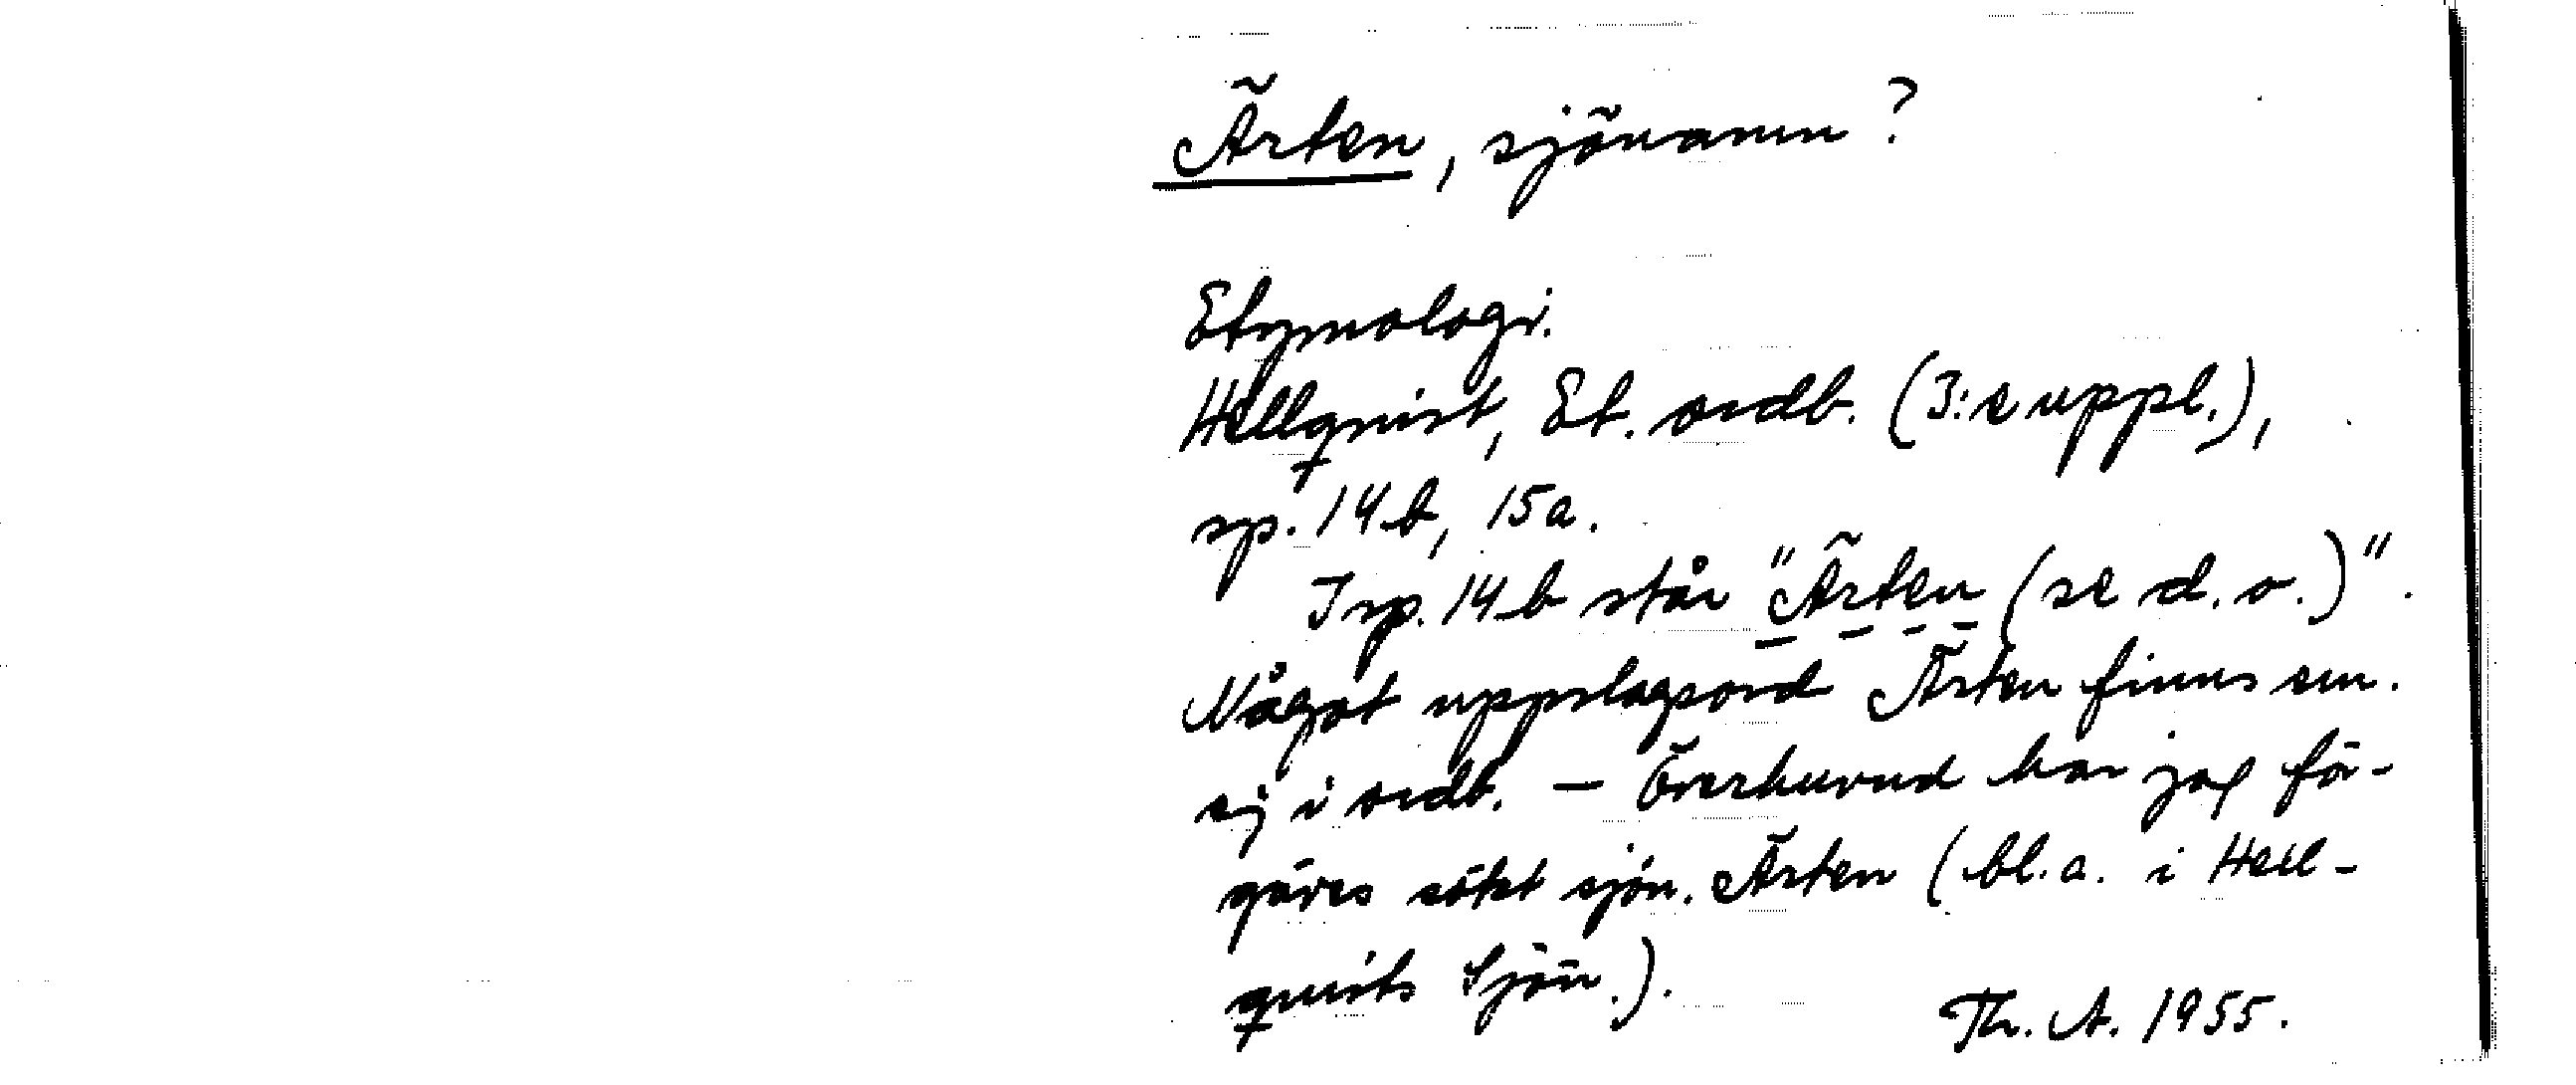 Ärten, sjönamn?
Etymologi.
Hellquist, Et. ordb. (3:e uppl.),
sp. 14b, 15a.
I sp. 14b står "Ärten (se d. o.)".
Något uppslagsord Ärten finns em.
ej i ordb. – Överhuvud har jag för-
gäves sökt sjön. Ärten (bl.a. i Hell-
quists Sjön.).
Th. A. 1955.